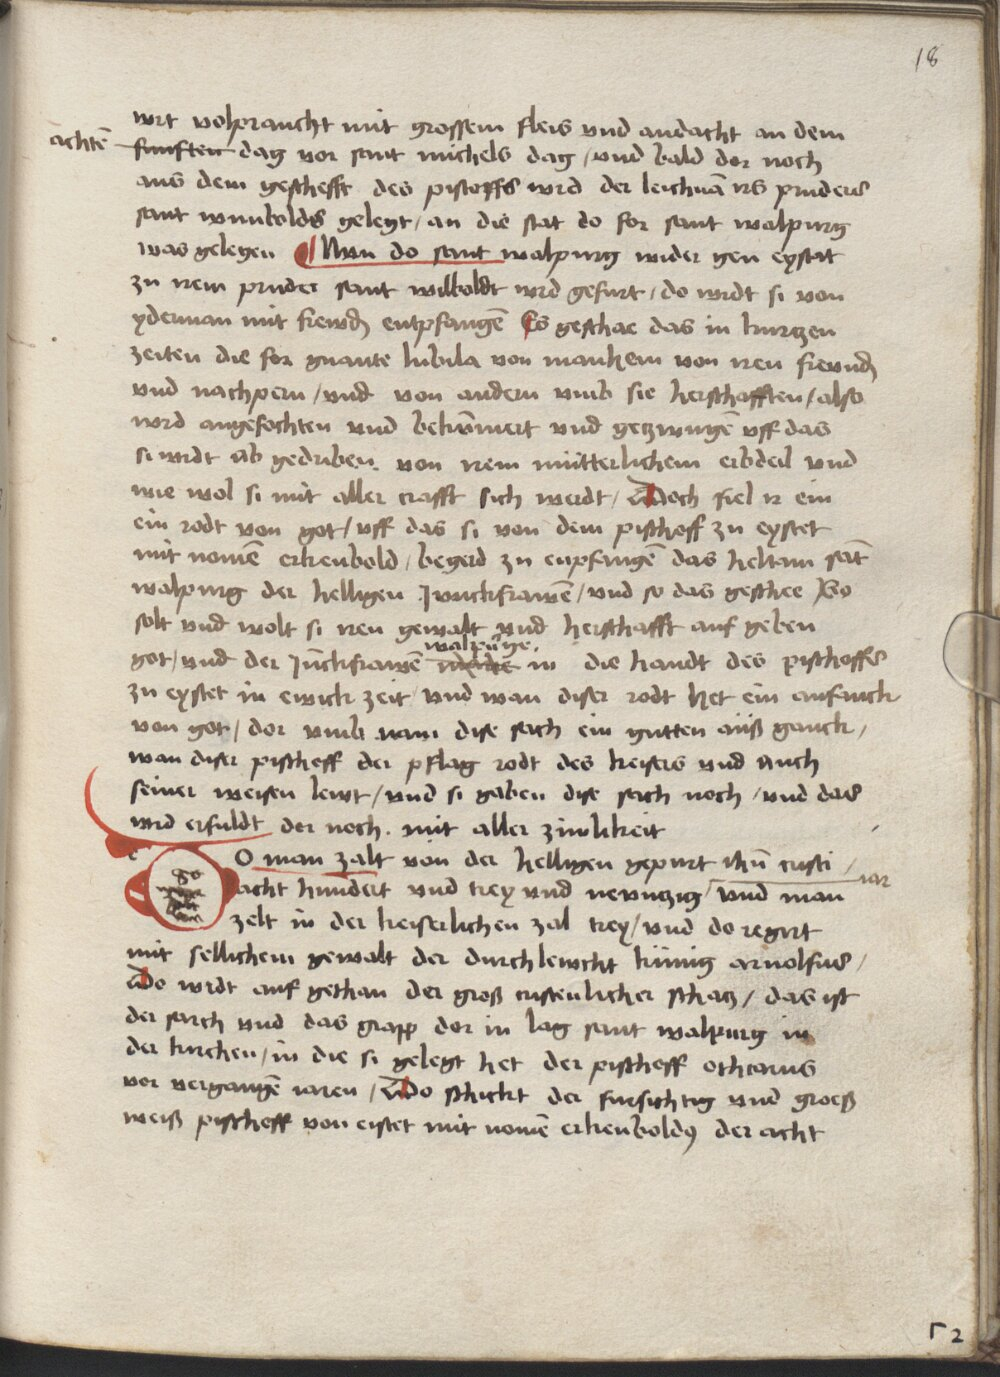 18
wrt volpraucht mit grossem fleis vnd andacht an dem
achtē funften dag vor sant michels dag / vnd bald dor noch
aus dem geschefft des pistoffs wrd der leichnā irs pruders
sant wunibolds gelegt / an die stat do for sant walpurg
was gelegen Nvn do sant walpurg wider gen eystat
zu irem pruder sant wilboldt wrd gefurt / do wrdt si von
yderman mit frewdē entpfangē Es geschae das in kurtzen
zeiten die for gnante lubila von manhem von iren frewndē
vnd nachpern / vnd von andern vmb sie herschafften / also
word angefochten vnd bekūmert vnd getzwungē vff das
si wrdt ab gedriben von irem mütterlichem erbdeil vnd
wie wol si mit aller crafft sich werdt / Doch fiel ir ein
ein rodt von got / vff das si von dem pischoff zu eystet
mit nomē erkenbold / begerd zu enpfangē das heltam sāt
walpurg der helligen Junckfrawē / vnd so das geschee So
solt vnd wolt si iren gewalt vnd herschafft auf geben
walpurge
got / vnd der Jūckfrawē in die handt des pischoffes
zu eystet in ewick zeit / vnd wan diser rodt het ein anfanck
von got / dor vmb nam dise sach ein gutten auß ganck /
wan diser pischoff der pflag rodt des keisers vnd auch
seiner weisen lewt / vnd si gaben dise sach noch / vnd das
wrd erfuldt dor noch mit aller zimlikeit
DO man zalt von der helligen gepurt ihū cristi /
acht hundert vnd trey vnd newntzig / vnd man iar
zelt in der keiserlichen zal trey / vnd do regirt
mit sellichem gewalt der durchlewcht künig arnolfus /
Do wrdt auf gethan der groß cristenlicher schatz / das ist
der sarch vnd das grapp dor in lag sant walpurg in
der kirchen / in die si gelegt het der pischoff othcarius
vor vergangē iaren / Do schickt der fursichtig vnd groeß
weiß pischoff von eistet mit nomē erkenboldꝰ der acht